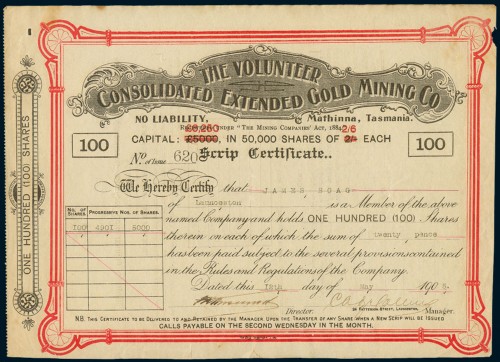 THE VOLUNTEER
CONSOLIDATED EXTENDED GOLD MINING CO
NO LIABILITY. Mathinna, Tasmania.
UNDER "THE MINING COMPANIES' ACT, 1884
£6,250 2/6
CAPITAL: £5000, IN 50,000 SHARES OF 2/- EACH
100 100
No. of Issue 620 Scrip Certificate..
We Hereby Certify that JAMES BOAG
of Launceston is a Member of the above
named Company and holds ONE HUNDRED (100) Shares
therein on each of which the sum of twenty pence
has been paid subject to the several provisions contained
in the Rules and Regulations of the Company.
Dated this day of May 190
Director. Manager.
ONE HUNDRED (100) SHARES
No. of SHARES. PROGRESSIVE NOS. OF SHARES.
100 4901 5000
N.B. THIS CERTIFICATE TO BE DELIVERED TO AND RETAINED BY THE MANAGER UPON THE TRANSFER OF ANY SHARE WHEN A NEW SCRIP WILL BE ISSUED
CALLS PAYABLE ON THE SECOND WEDNESDAY IN THE MONTH.